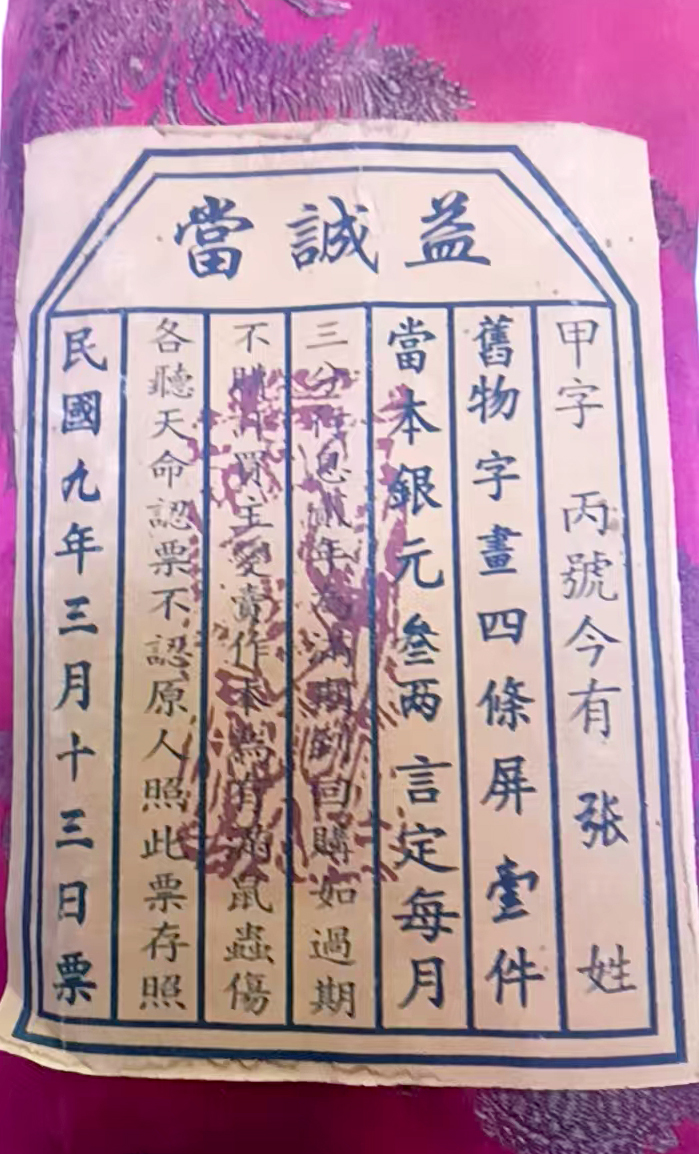 益誠當
甲字 丙號今有 張 姓
舊物字畫四條屏壹件
當本銀元叁两言定每月
三分行息貳年為滿期到回購如過期
不購月買主變賣作本為有滷鼠蟲傷
各聽天命認票不認原人照此票存照
民國九年三月十三日票